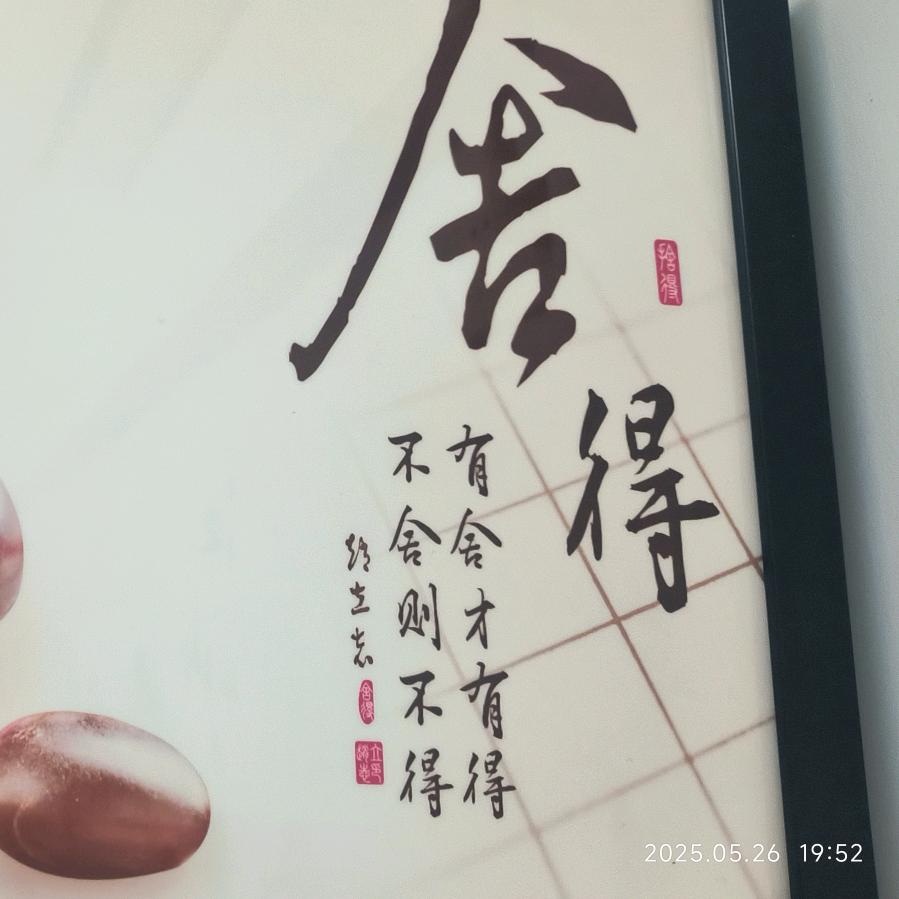 舍
得
捨得
有舍才有得
不舍则不得
舍得
2025.05.26 19:52